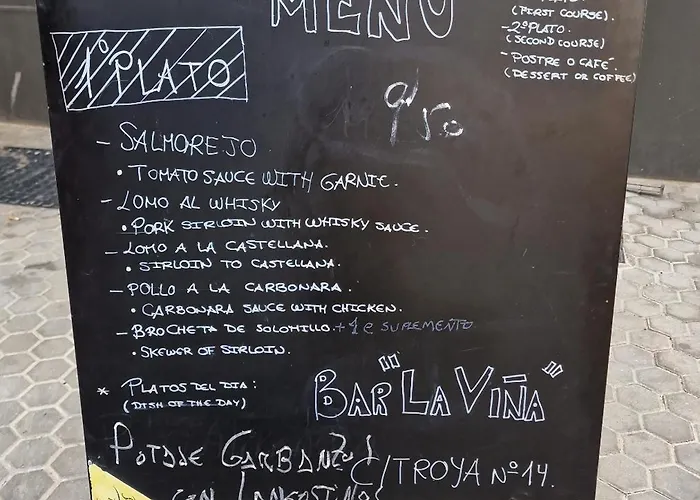 MENÚ
(FIRST COURSE).
- 2º PLATO.
(SECOND COURSE)
- POSTRE O CAFÉ.
(DESSERT OR COFFEE)
1º PLATO
9'50
- SALMOREJO.
• TOMATO SAUCE WITH GARNIC.
- LOMO AL WHISKY
• PORK SIRLOIN WITH WHISKY SAUCE.
- LOMO A LA CASTELLANA.
• SIRLOIN TO CASTELLANA.
- POLLO A LA CARBONARA.
• CARBONARA SAUCE WITH CHICKEN.
- BROCHETA DE SOLOMILLO. +1€ SUPLEMENTO
• SKEWER OF SIRLOIN.
* PLATOS DEL DIA:
(DISH OF THE DAY)
BAR "LA VIÑA"
POTAJE GARBANZOS
CON LANGOSTINOS
C/TROYA Nº 14.